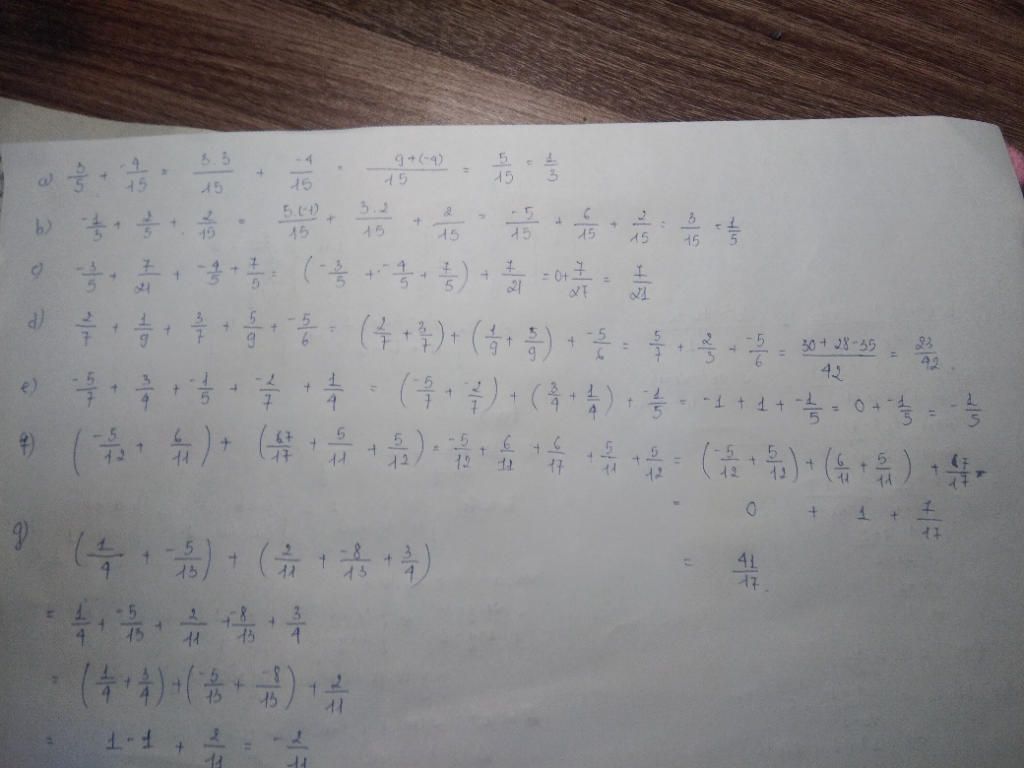 a) 3/5 + -4/15 = 3.3/15 + -4/15 = 9+(-4)/15 = 5/15 = 1/3
b) -1/3 + 2/5 + 2/15 = 5.(-1)/15 + 3.2/15 + 2/15 = -5/15 + 6/15 + 2/15 = 3/15 = 1/5
c) -3/5 + 7/21 + -4/5 + 7/5 = (-3/5 + -4/5 + 7/5) + 7/21 = 0+7/27 = 7/21
d) 2/7 + 1/9 + 3/7 + 5/9 + -5/6 = (2/7 + 3/7) + (1/9 + 5/9) + -5/6 = 5/7 + 2/3 + -5/6 = 30+28-35/42 = 23/42.
e) -5/7 + 3/4 + -1/5 + -2/7 + 1/4 = (-5/7 + -2/7) + (3/4 + 1/4) + -1/5 = -1 + 1 + -1/5 = 0 + -1/5 = -1/5
(-5/12 + 6/11) + ( /17 + 5/11 + 5/12) = -5/12 + 6/11 + 6/17 + 5/11 + 5/12 = (-5/12 + 5/12) + (6/11 + 5/11) + /17
= 0 + 1 + 7/17
= 41/17.
g) (1/4 + -5/13) + (2/11 + -8/13 + 3/4)
= 1/4 + -5/13 + 2/11 + -8/13 + 3/4
= (1/4 + 3/4) + (-5/13 + -8/13) + 2/11
= 1 - 1 + 2/11 = -2/11